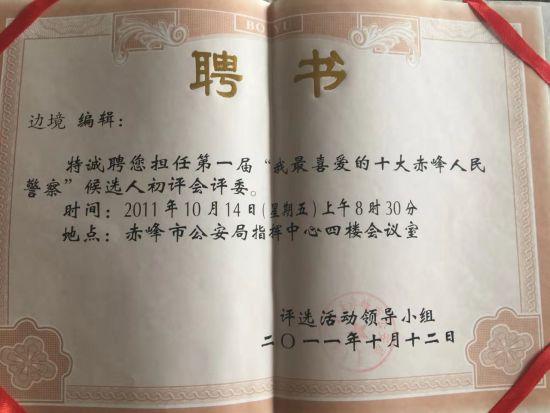 聘书
边境 编辑：
特诚聘您担任第一届“我最喜爱的十大赤峰人民
警察”候选人初评会评委。
时间：2011年10月14日（星期五）上午8时30分
地点：赤峰市公安局指挥中心四楼会议室
评选活动领导小组
二〇一一年十月十二日